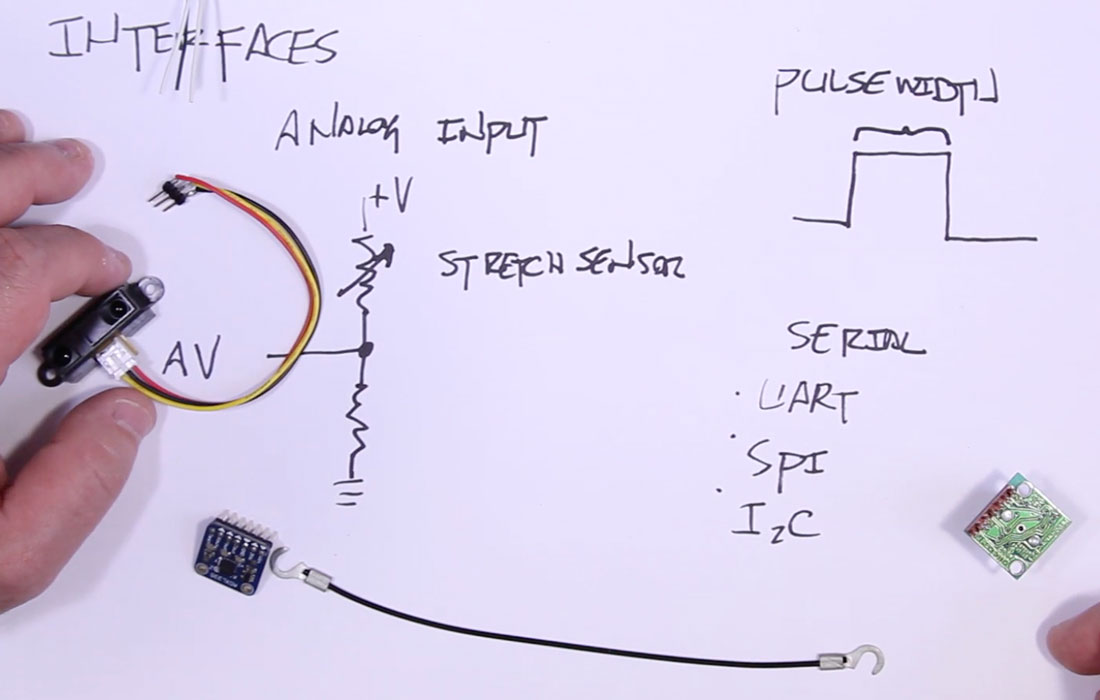 INTERFACES
ANALOG INPUT
+V
STRETCH SENSOR
AV
PULSEWIDTH
SERIAL
· UART
· SPI
· I2C